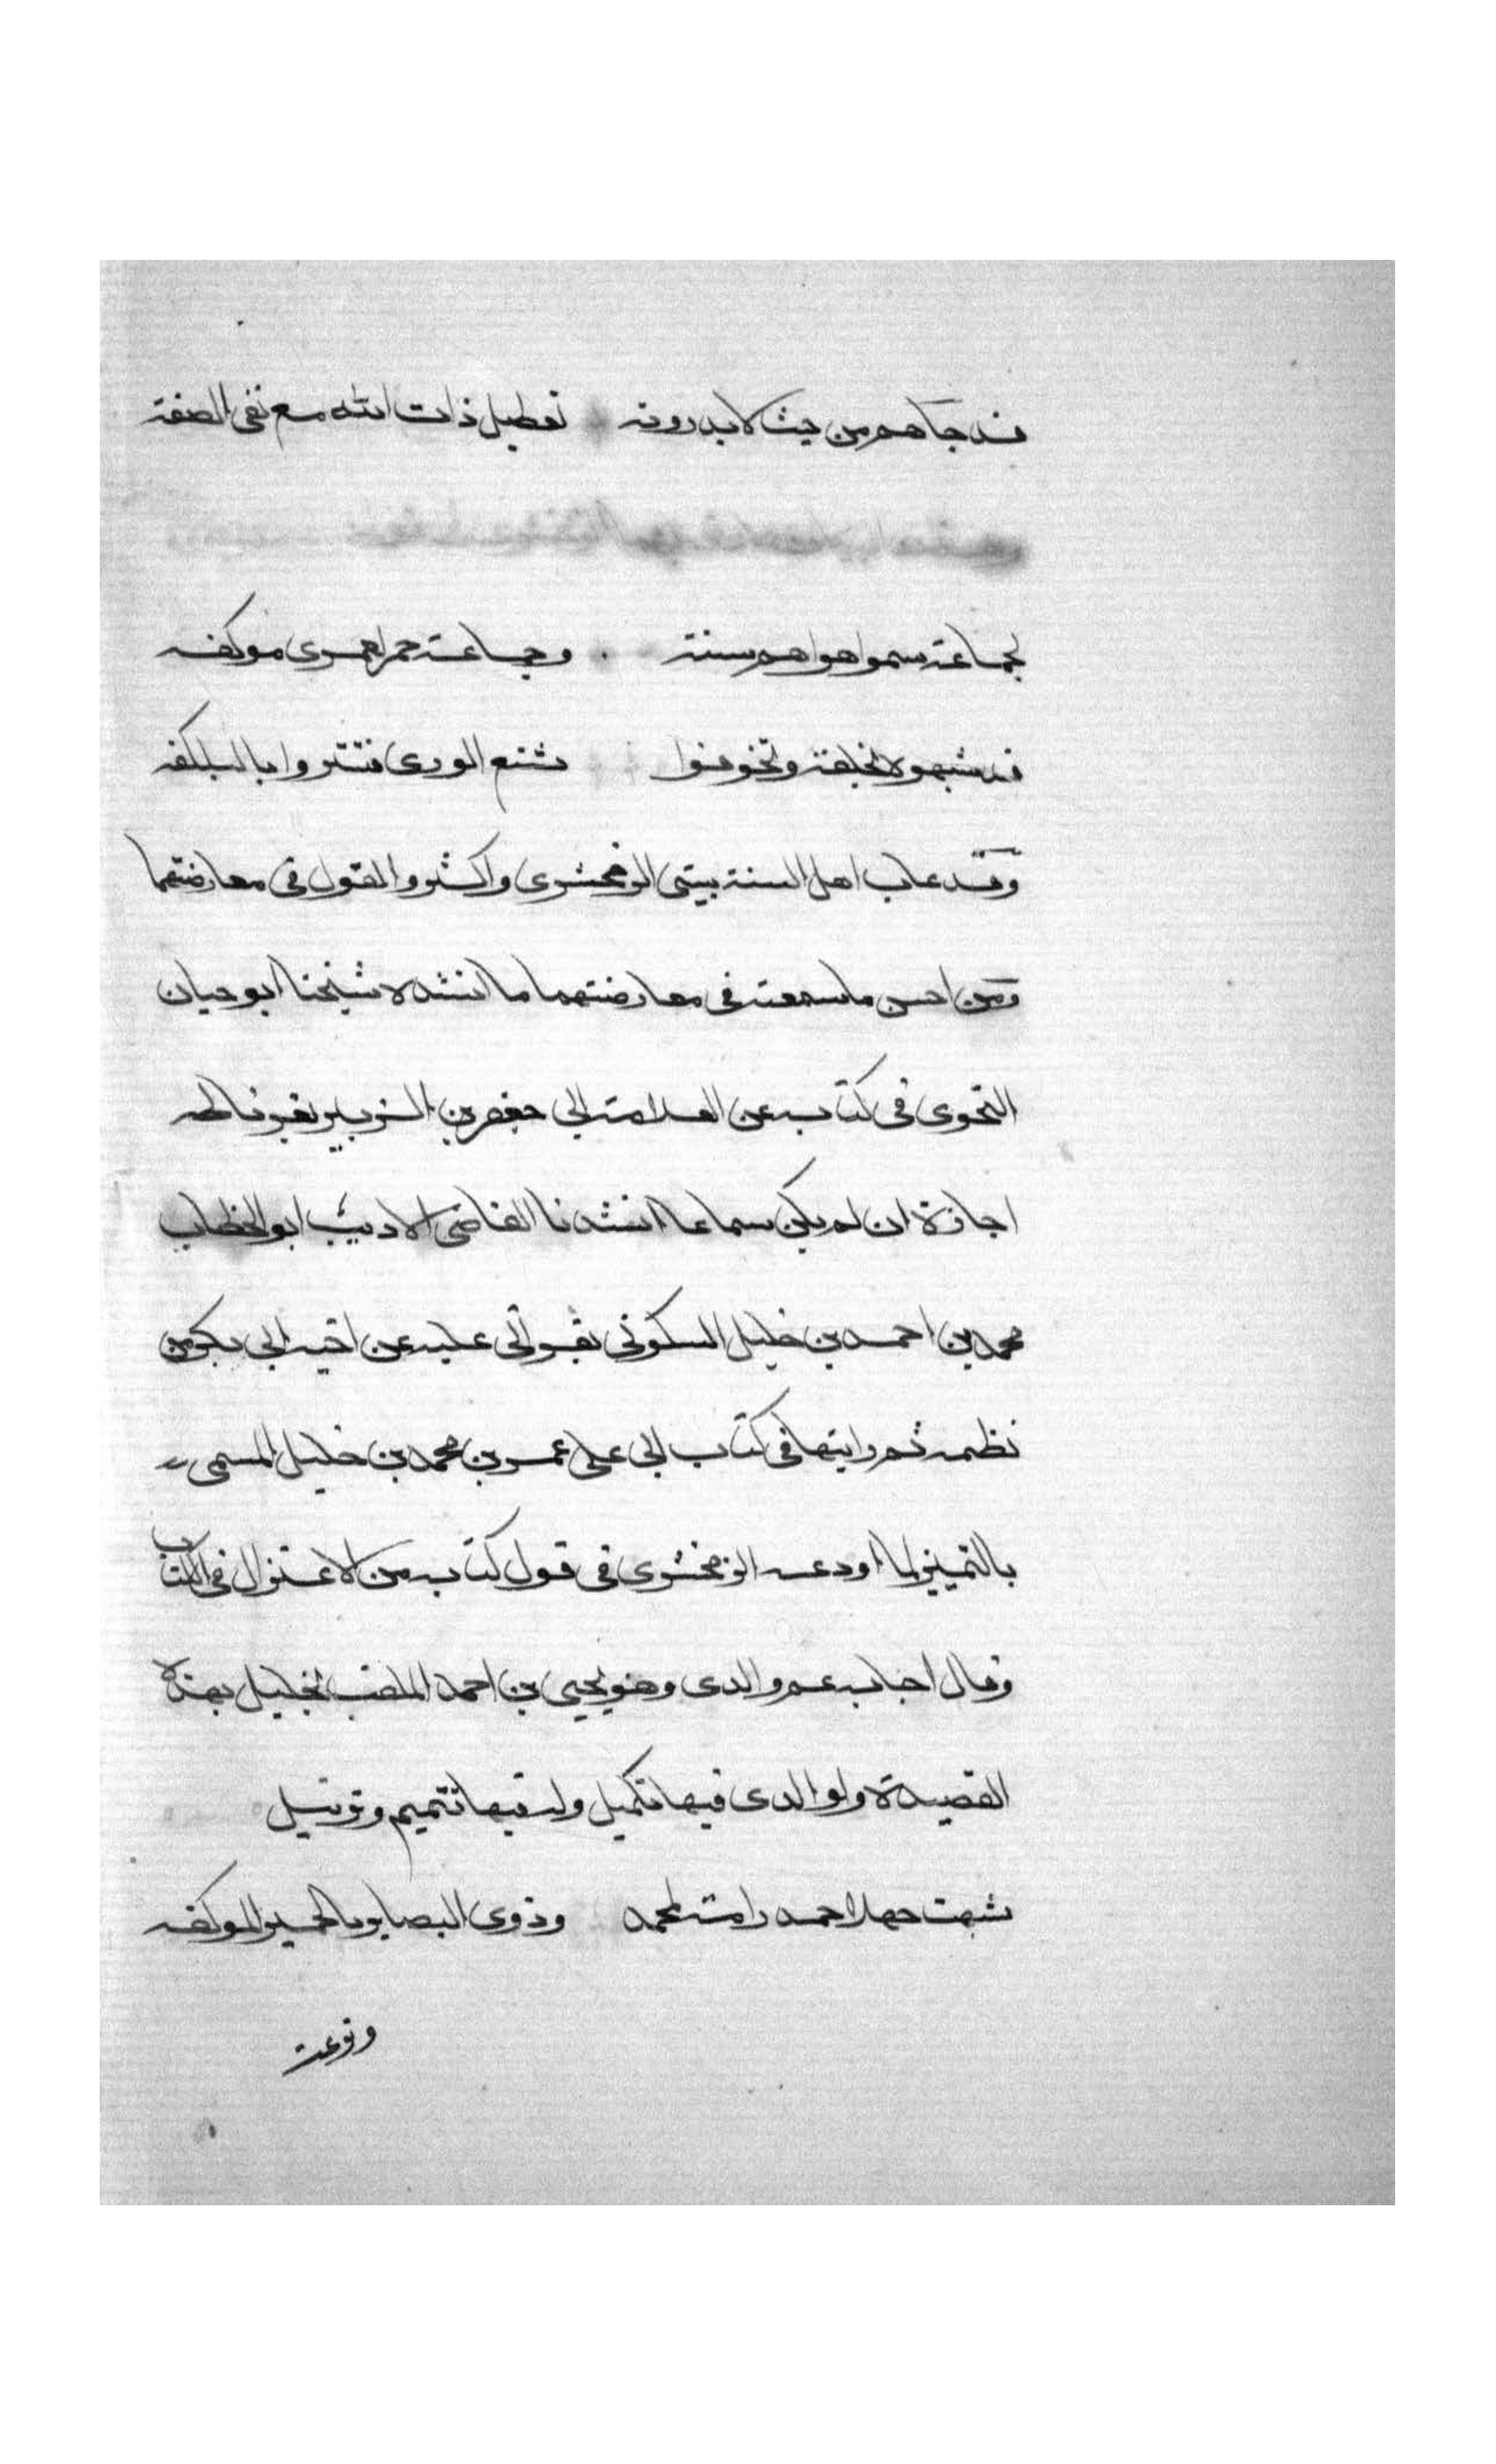 قد جآهم من حيث لا يدرونه تعطيل ذات الله مع نفي الصفة
لجماعة سموا هواهم سنة وجماعة حمر لعمرى موكفه
قد شبهوه بخلقه وتخوفوا شنع الورى فتستروا بالبلكفه
وقد عاب اهل السنة بيتى الزمخشرى واكثروا القول في معارضتهما
ومن احسن ما سمعته في معارضتهما ما انشده شيخنا ابو حيان
النحوى في كتابه عن العلامة ابي جعفر بن الزبير بغرناطه
اجازة ان لم يكن سماعا انشدنا القاضى الاديب ابو الخطاب
محمد بن احمد بن خليل السكونى بقراتى عليه عن اخيه ابي بكر من
نظمه ثم رايتها في كتاب ابي على عمر بن محمد بن خليل المسمى
بالتمييز لما اودعه الزمخشرى في قول كتابه من الاعتزال في الكتاب
وقال اجاب عم والدى وهو يحيى بن احمد الملقب بخليل بهذه
القصيدة ولوالدى فيها تكميل ولى فيها تتميم وتذييل
شبهت جهلا احمد رامة احمد وذوى البصاير بالحمير الموكفه
ونزعت